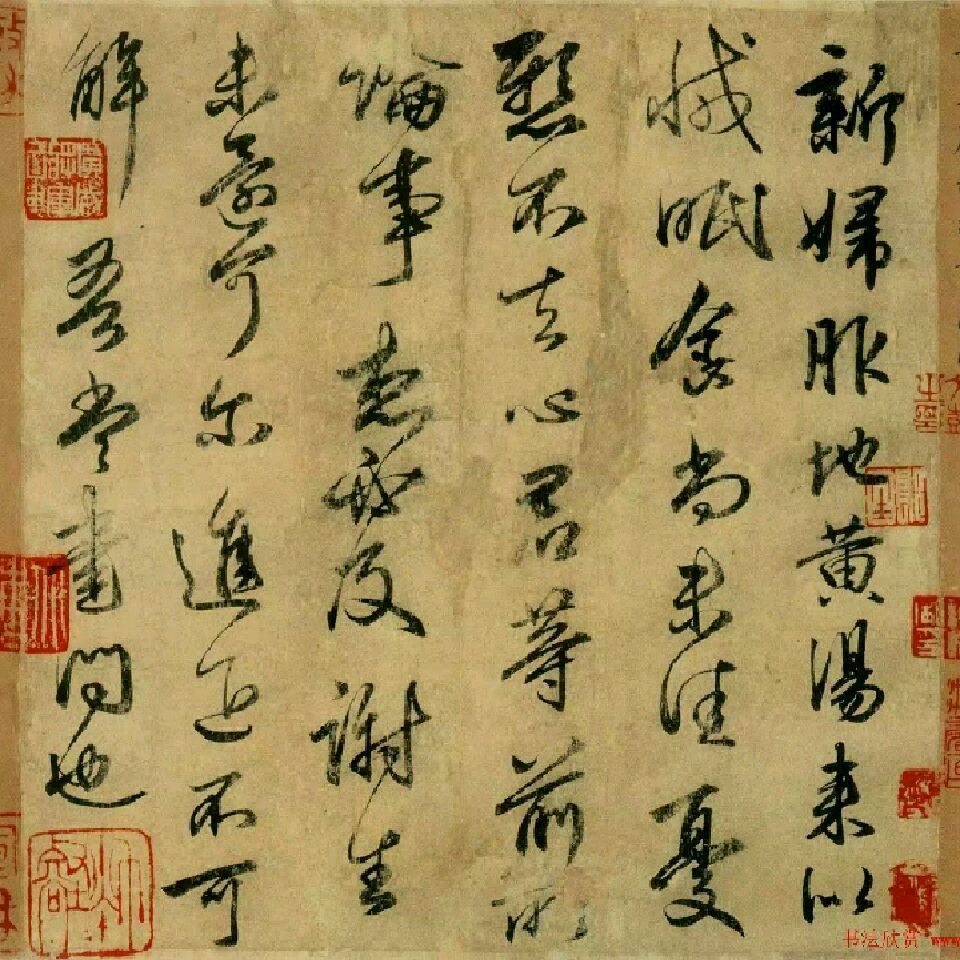 新婦服地黄湯来似
減眠食尚未佳憂
懸不去心君等前所
論事想必及謝生
未還可尔進退不可
解吾當書問也
书法欣赏 www